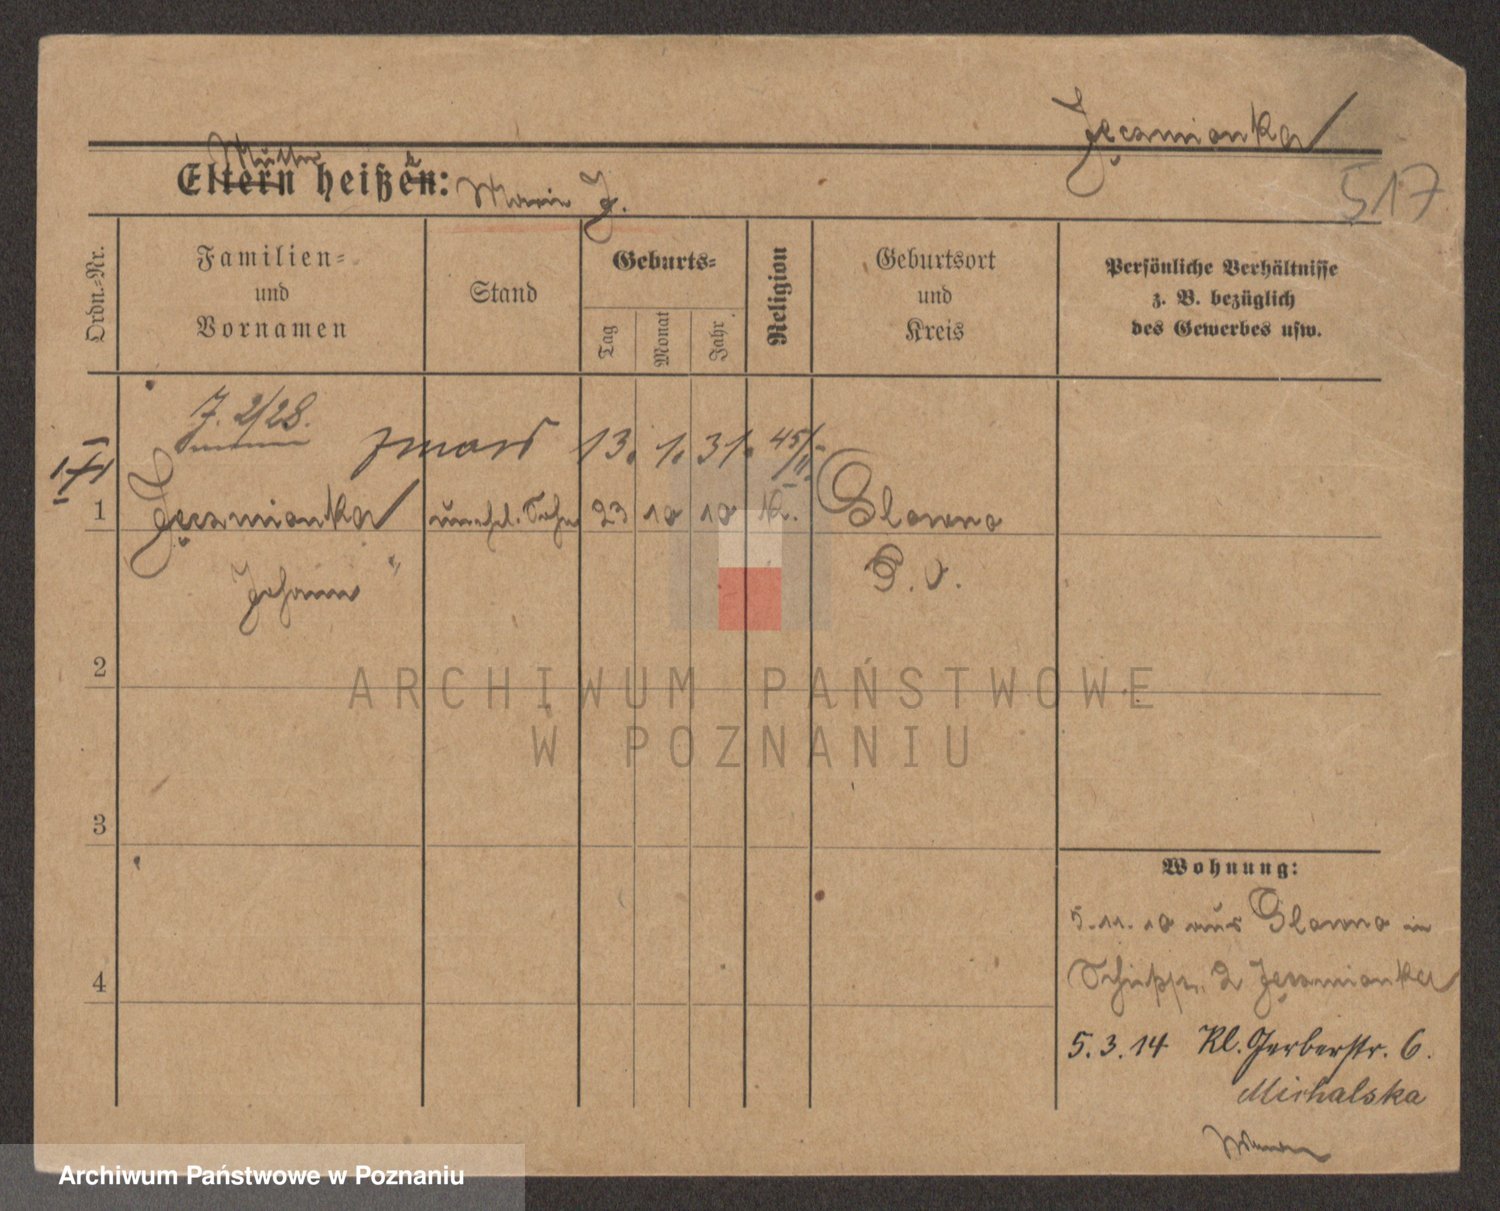 Jęczmionka
517
Mutter
Eltern heißen: Marie J.
Ordn.-Nr.
Familien-
und
Vornamen
Stand
Geburts-
Tag
Monat
Jahr
Religion
Geburtsort
und
Kreis
Persönliche Verhältnisse
z. B. bezüglich
des Gewerbes usw.
J. 2/28.
zmarł 13. 1. 31. 45/II
1 Jęczmionka unehl. Sohn 23 10 10 k. Glowno
Johann P. O.
2
ARCHIWUM PAŃSTWOWE
W POZNANIU
3
Wohnung:
5.11.10 aus Glowno in
4
2 Jęczmionka
5.3.14 Kl. Gerberstr. 6.
Michalska
Archiwum Państwowe w Poznaniu